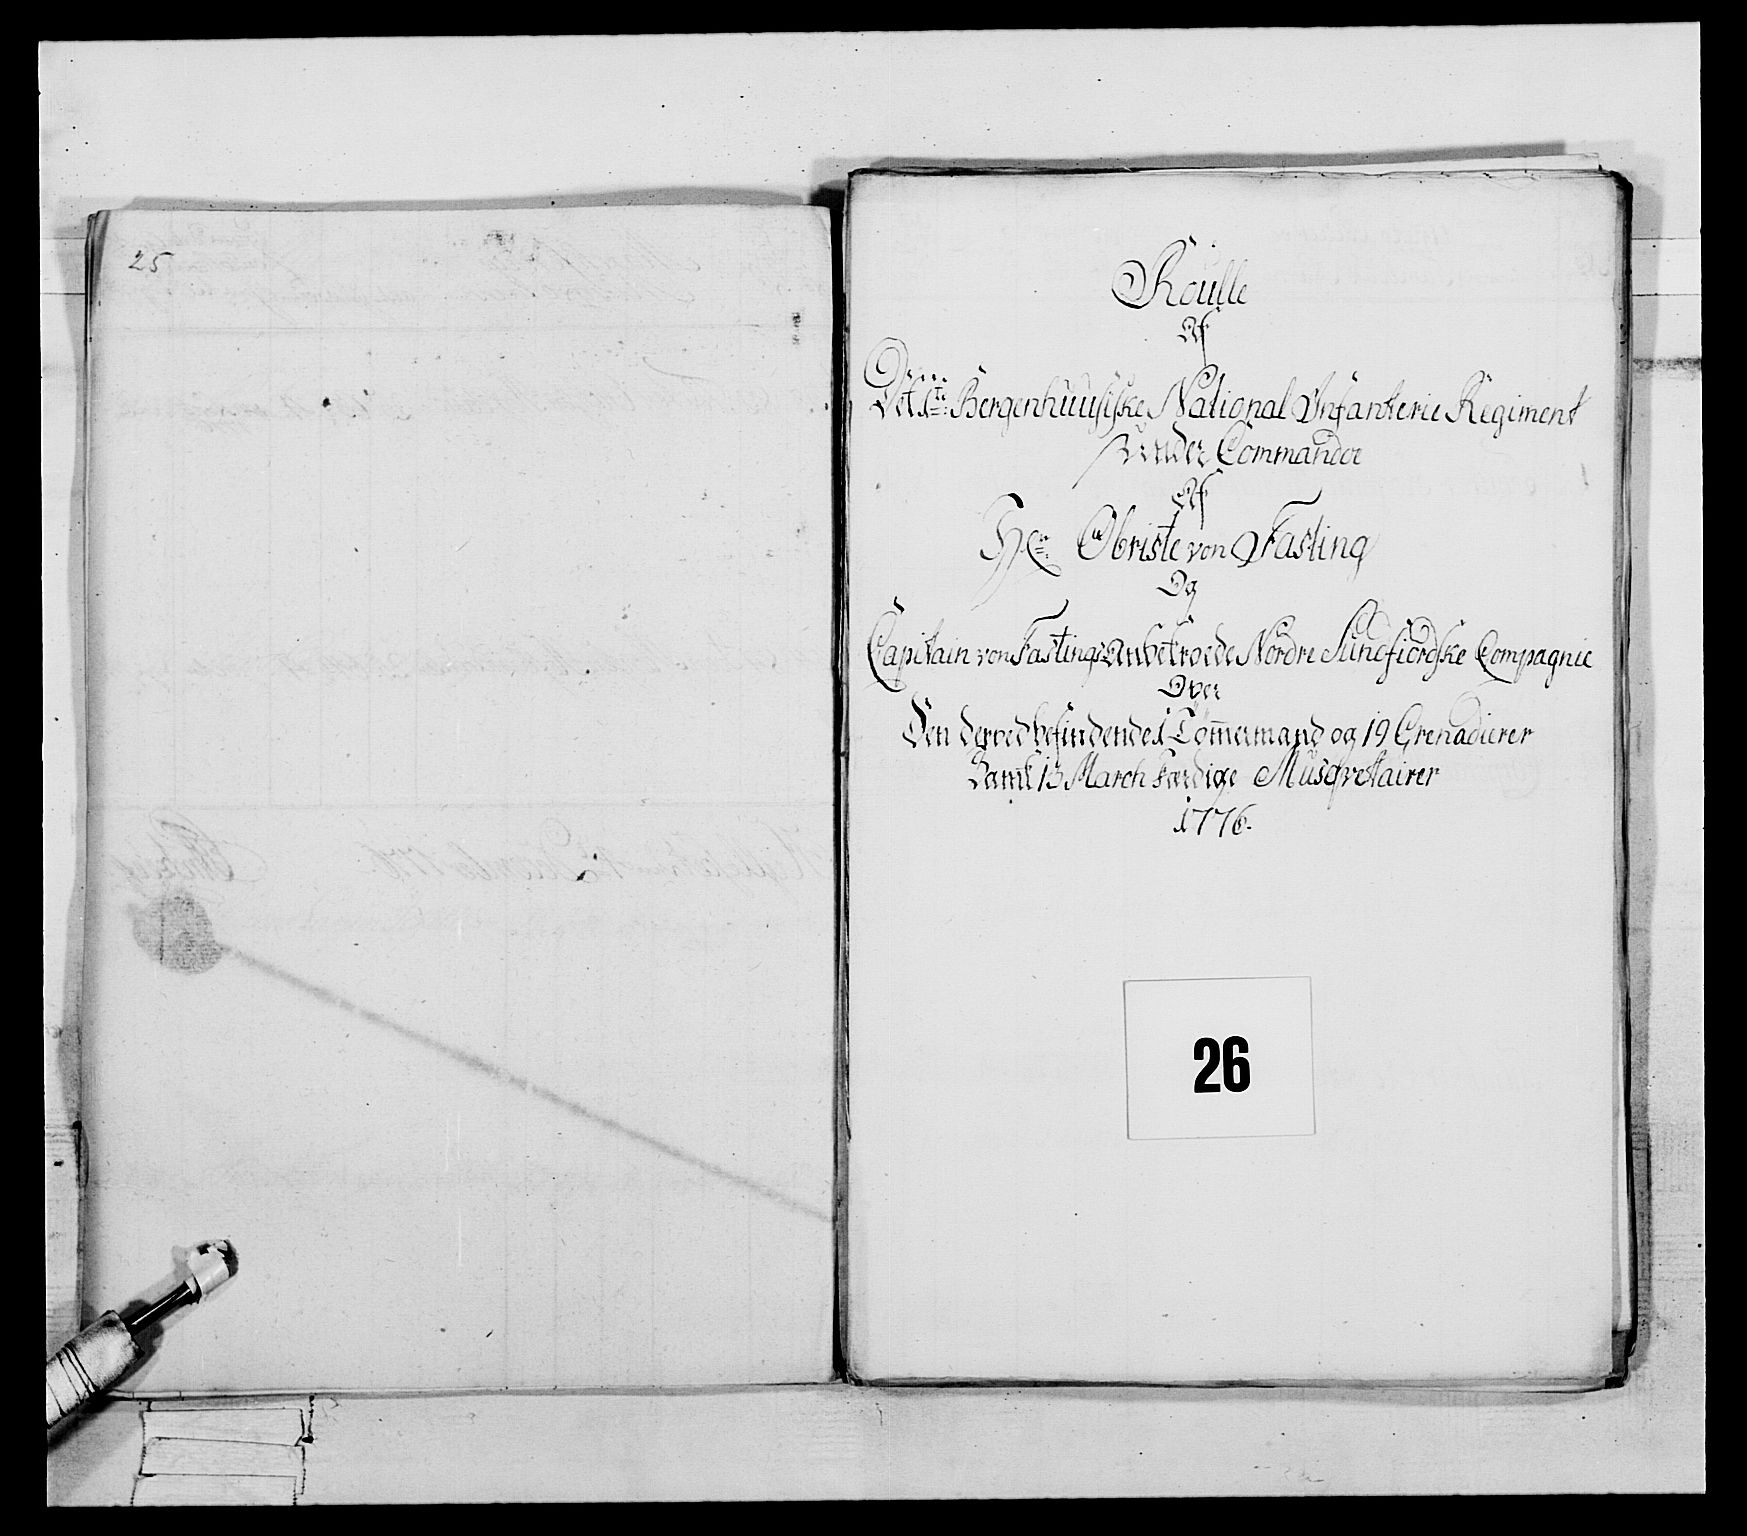 25
Roulle
Af
Det 1te Bergenhuusiske National Infanterie Regiment
under Commando
Af
Hr Obriste von Fasting
Og
Capitain von Fastings Anbetroede Nordre Sundfiordske Compagnie
Over
Den derved befindende 1 Tømmermand og 19 Grenadierer
Samt 13 March færdige Musqvetairer
1776.
26